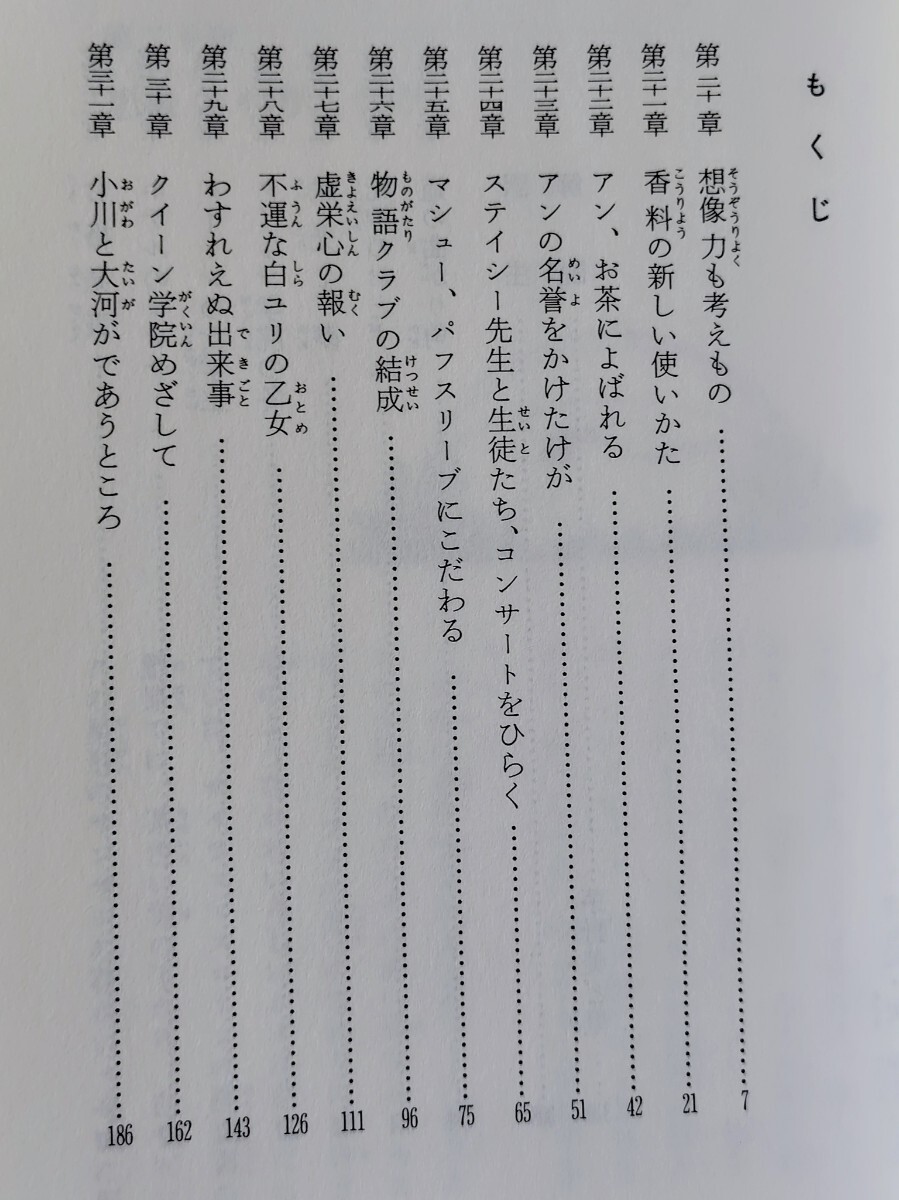 もくじ
第二十章 想像力も考えもの 7
第二十一章 香料の新しい使いかた 21
第二十二章 アン、お茶によばれる 42
第二十三章 アンの名誉をかけたけが 51
第二十四章 ステイシー先生と生徒たち、コンサートをひらく 65
第二十五章 マシュー、パフスリーブにこだわる 75
第二十六章 物語クラブの結成 96
第二十七章 虚栄心の報い 111
第二十八章 不運な白ユリの乙女 126
第二十九章 わすれえぬ出来事 143
第三十章 クイーン学院めざして 162
第三十一章 小川と大河がであうところ 186